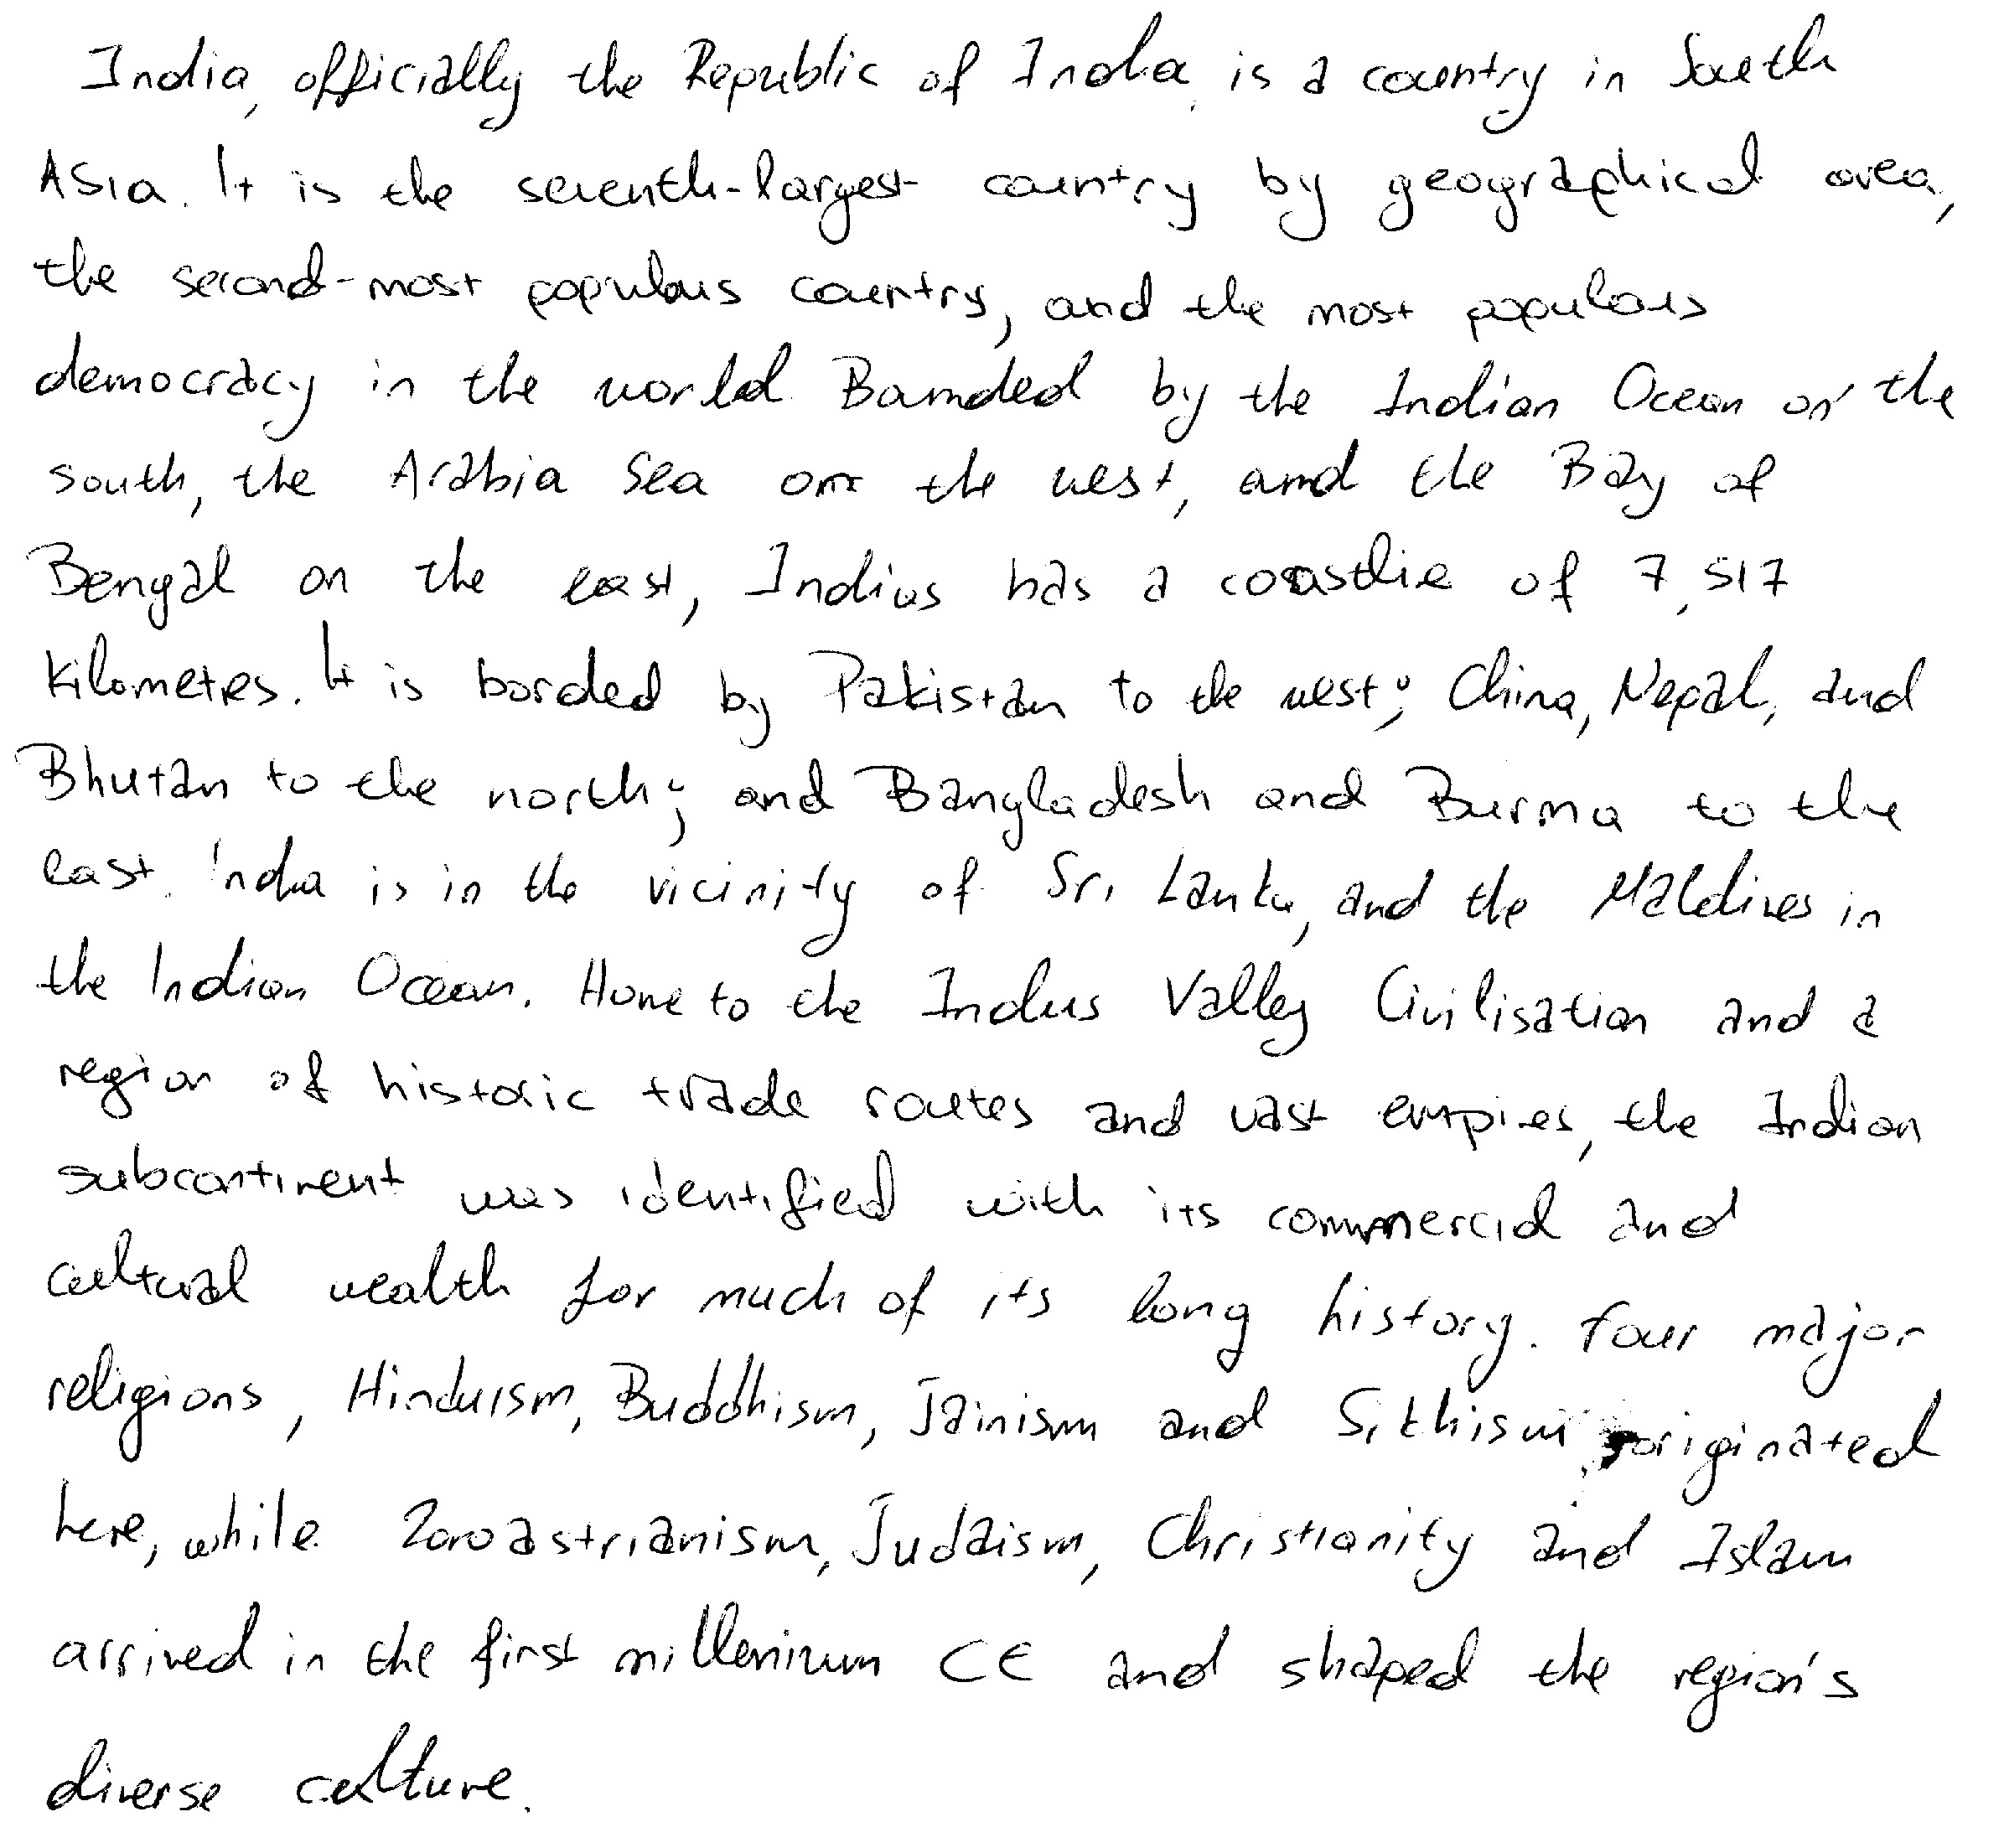 India, officially the Republic of India, is a country in South
Asia. It is the seventh-largest country by geographical area,
the second-most populous country, and the most populous
democracy in the world. Bounded by the Indian Ocean on the
south, the Arabia Sea on the west, and the Bay of
Bengal on the east, Indias has a coastlie of 7,517
kilometres. It is borded by Pakistan to the west; China, Nepal, and
Bhutan to the north; and Bangladesh and Burma to the
east. India is in the vicinity of Sri Lanka, and the Maldives in
the Indian Ocean. Home to the Indus Valley Civilisation and a
region of historic trade routes and vast empires, the Indian
subcontinent was identified with its commercial and
cultural wealth for much of its long history. Four major
religions, Hinduism, Buddhism, Jainism and Sikhism, originated
here, while Zoroastrianism, Judaism, Christianity and Islam
arrived in the first millennium CE and shaped the region's
diverse culture.